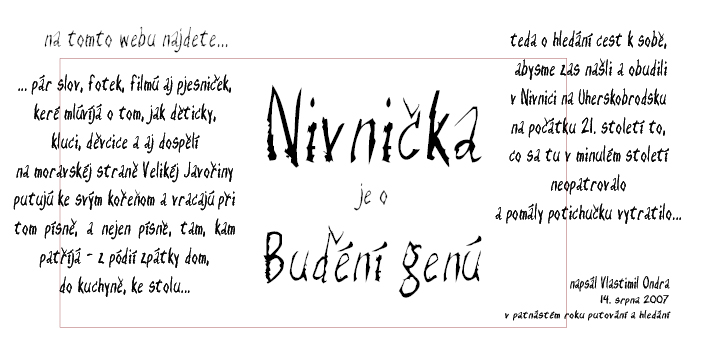 na tomto webu najdete...
... pár slov, fotek, filmú aj pjesniček,
keré mlúvijá o tom, jak děticky,
kluci, děvcice a aj dospělí
na moravskéj straně Velikéj Javořiny
putujú ke svým kořeňom a vracajú při
tom písně, a nejen písně, tam, kam
patříjá - z pódií zpátky dom,
do kuchyně, ke stolu...
Nivnička
je o
Buďéní genú
teda o hledání cest k sobě,
abysme zas našli a obudili
v Nivnici na Uherskobrodsku
na počátku 21. století to,
co sa tu v minulém století
neopatrovalo
a pomály potichučku vytratilo...
napsál Vlastimil Ondra
14. srpna 2007
v patnástém roku putování a hledání